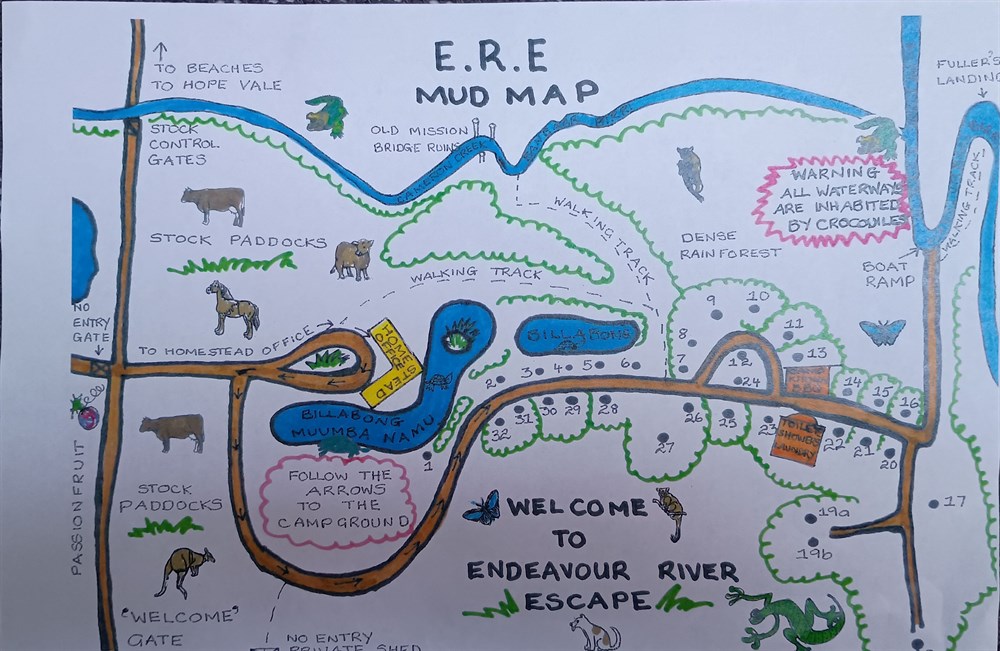 E.R.E
MUD MAP
TO BEACHES
TO HOPE VALE
FULLER'S
LANDING
STOCK
CONTROL
GATES
OLD MISSION
BRIDGE RUINS
CAMERON CREEK
WARNING
ALL WATERWAYS
ARE INHABITED
BY CROCODILES
WALKING TRACK
STOCK PADDOCKS
WALKING TRACK
WALKING TRACK
DENSE
RAINFOREST
BOAT
RAMP
NO
ENTRY
GATE
TO HOMESTEAD OFFICE
HOMESTEAD
BILLABONG
9
10
11
8
7
12
13
24
14
15
16
2
3
4
5
6
BILLABONG
MUUMBA NAMU
32
31
30
29
28
26
27
15
23
TOILET
SHOWERS
LAUNDRY
22
21
20
1
17
19a
19b
PASSIONFRUIT
STOCK
PADDOCKS
FOLLOW THE
ARROWS
TO THE
CAMPGROUND
WELCOME
TO
ENDEAVOUR RIVER
ESCAPE
'WELCOME'
GATE
NO ENTRY
PRIVATE SHED